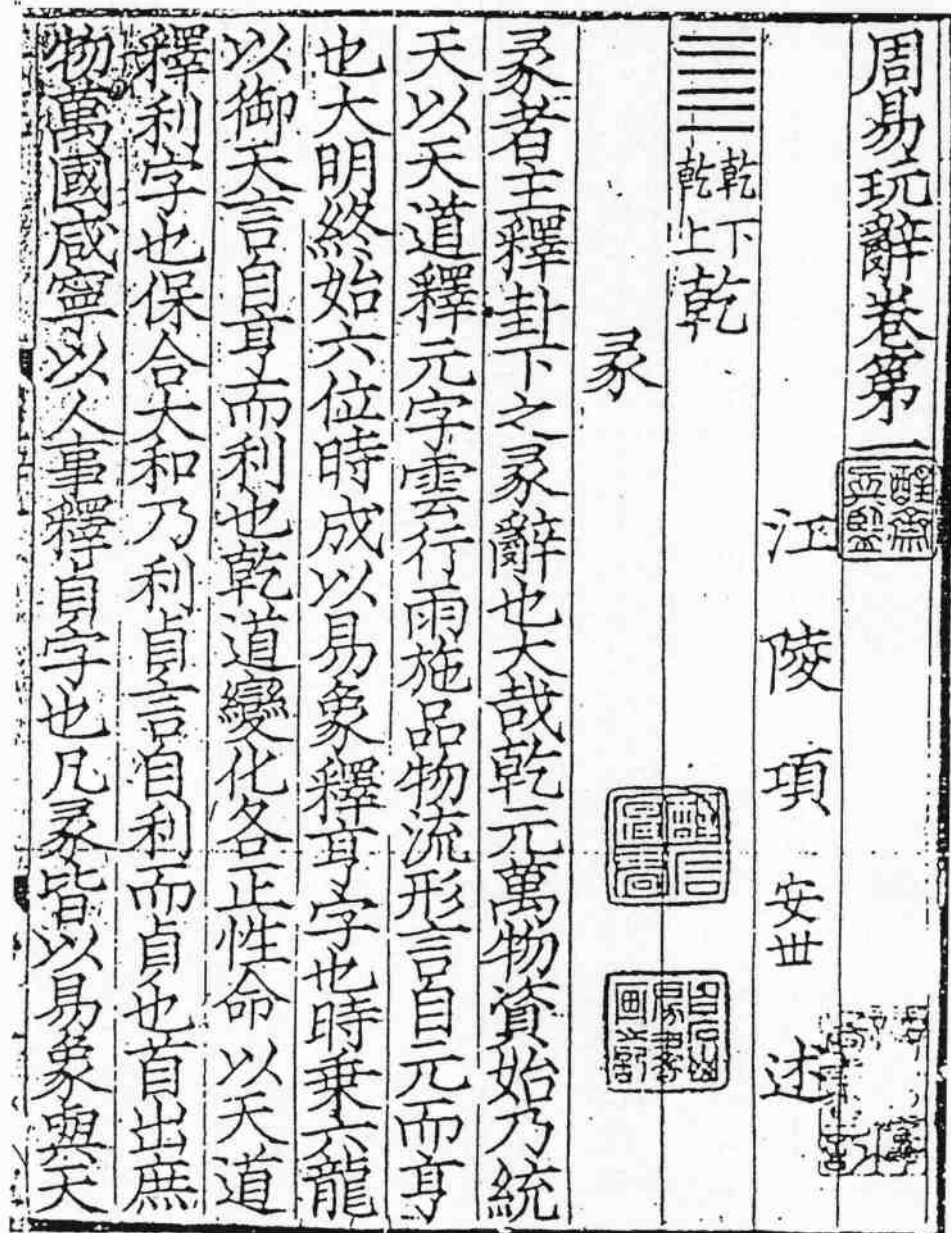 周易玩辭卷第一
江陵項安世述
乾下乾上乾
彖
彖者主釋卦下之彖辭也大哉乾元萬物資始乃統
天以天道釋元字雲行雨施品物流形言自元而亨
也大明終始六位時成以易象釋亨字也時乗六龍
以御天言自亨而利也乾道變化各正性命以天道
釋利字也保合大和乃利貞言自利而貞也首出庶
物萬國咸寧以人事釋貞字也凡彖皆以易象與天